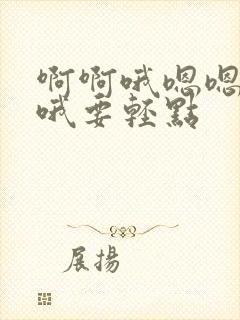 啊啊哦嗯嗯
哦要轻點
展揚